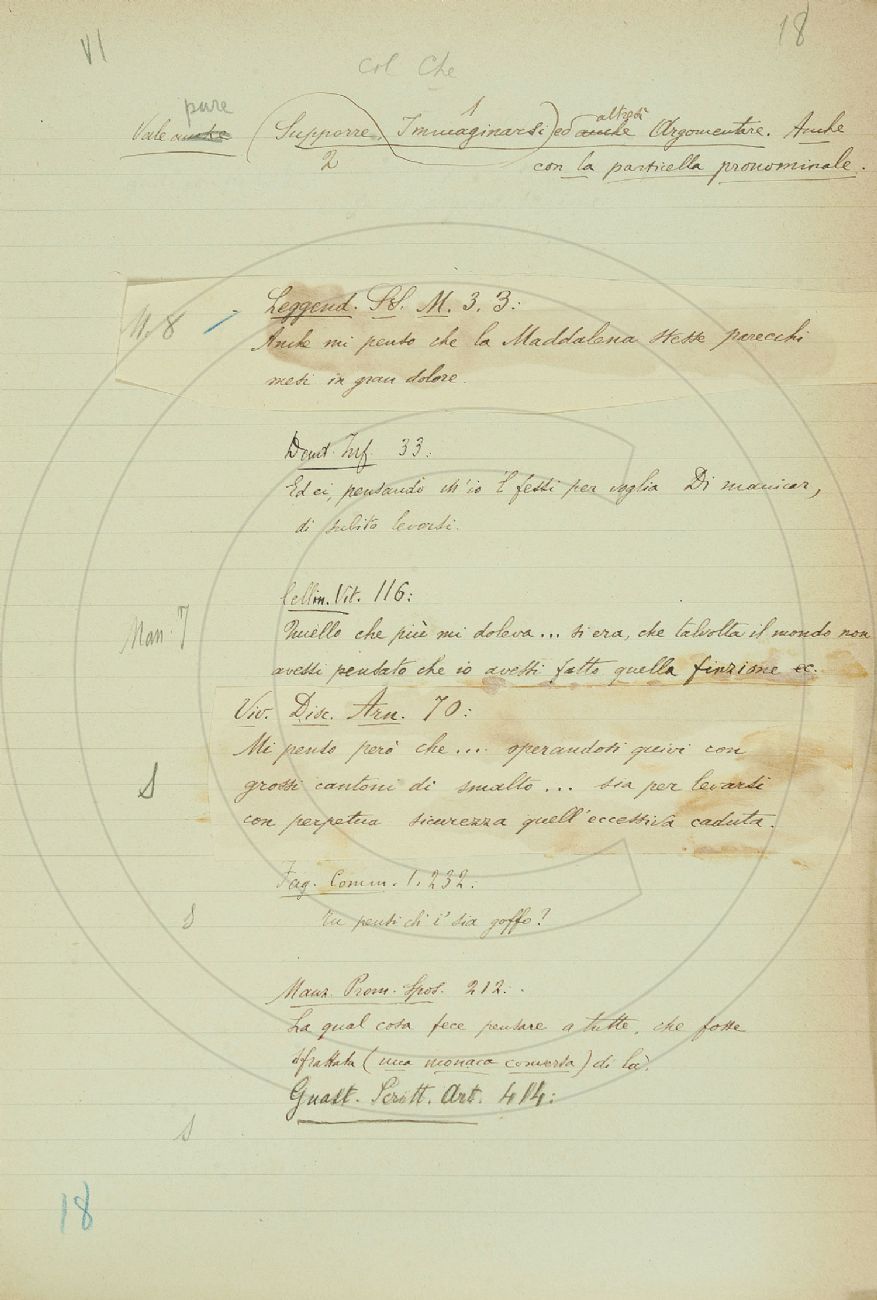 VI
18
col Che
pure
altresì
Vale anche (Supporre, Immaginarsi) ed anche Argomentare. Anche
1
2
con la particella pronominale.
Leggend. SS. M. 3. 3:
M. 8
Anche mi penso che la Maddalena stesse parecchi
mesi in gran dolore.
Dant. Inf. 33:
Ed ei, pensando ch'io 'l fessi per voglia Di manicar,
di subito levorsi.
Cellin. Vit. 116:
Man. 7
Quello che più mi doleva... si era, che talvolta il mondo non
avessi pensato che io avessi fatto quella finzione ec.
Viv. Disc. Arn. 70:
Mi penso però che... sperandosi quivi con
S
grossi cantoni di smalto... sia per levarsi
con perpetua sicurezza quell'eccessiva caduta.
Fag. Comm. 1. 232:
S
Tu pensi ch'i' sia goffo?
Manz. Prom. Spos. 212:
La qual cosa fece pensare a tutte, che fosse
sfrattata (una monaca conversa) di là.
Guast. Scritt. Art. 414:
S
18